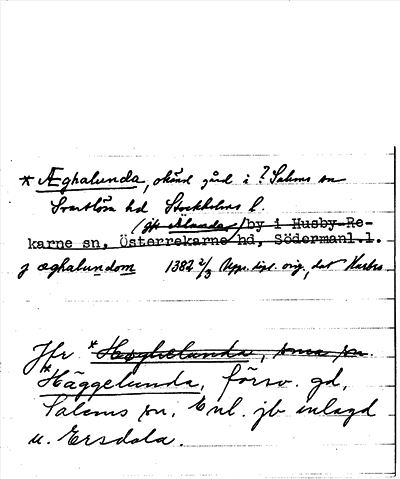 * Æghalunda, okänd gård i ? Salems sn
Svartlösa hd Stockholms l.
(jfr Älunda) by i Husby-Re-
karne sn, Österrekarne hd, Södermanl.l.
j æghalundom 1382 2/3 Uppr. dipl. orig., dat
Jfr *Høghelunda, sma sn.
*Häggelunda, försv. gd,
Salems sn. Enl. jb inlagd
u. Ersdala.